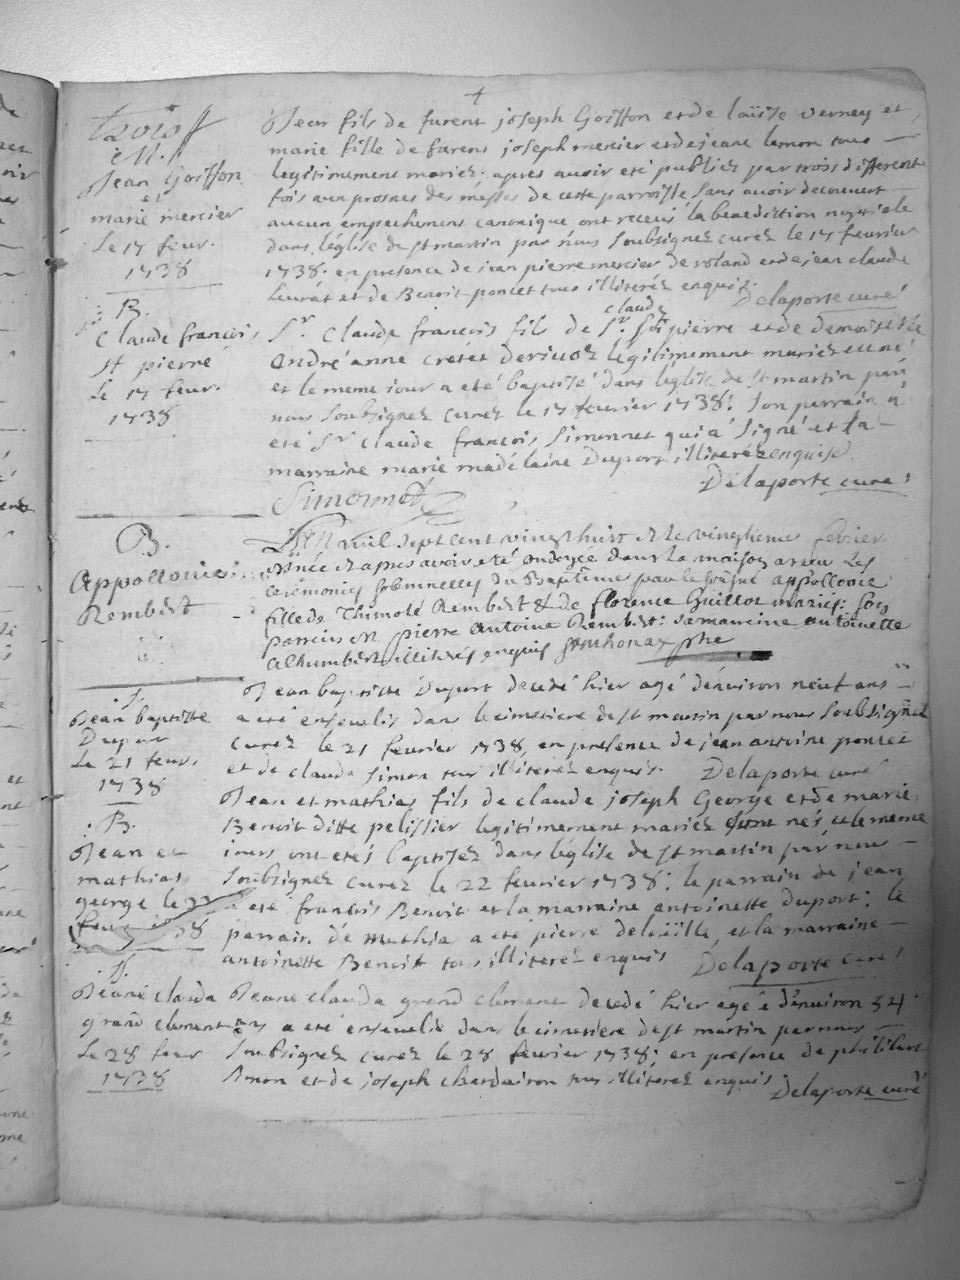 +
trois
M.
Jean Goiffon
et
marie mercier
Le 17 feur.
1738
Jean fils de furent joseph Goiffon et de Loüise Verney et
marie fille de furent joseph mercier et de jeane Lemon tous
legitimement mariez. apres auoir eté publiez par trois different
fois aux prosnes des messes de cette parroisse sans auoir decouvert
aucun empechement canonique ont receus la benediction nuptiale
dans l'église de st martin par nous soubsignez curez le 17 feurier
1738. en presence de jean pierre mercier de roland et de jean claude
Leurat et de Benoit poncet tous illiterez enquis.
Delaporte curé
B.
Claude francois
st pierre
Le 17 feur.
1738
Sr. Claude francois fils de Sr. claude St pierre et de demoiselle
André anne cretet legitimement mariez est né
et le meme iour a eté baptisé dans l'église de st martin par
nous soubsignez curez le 17 feurier 1738: son parrain a
eté Sr claude francois Simonnet qui a signé et la
marraine marie madelaine Duport illiterez enquise.
Delaporte curé
Simonnet
B.
Appollonie
Rembert
L'An mil sept cent vingt huit et le vingtieme fevrier
est née et apres avoir eté ondoyée dans la maison a receu les
céremonies solemnelles du Baptême par le susigné appollonie
fille de Thimoté Rembert & de florence Guillot mariés: son
parrein est pierre Antoine Rembert: sa mareine antoinette
Alhumbert illitrés enquis ptre
S.
Jean baptiste
Duport
Le 21 feur.
1738
Jean baptiste Duport decedé hier agé d'enuiron neuf ans
a eté enseuelis dans le cimetiere de st martin par nous soubsigné
curez le 21 feurier 1738, en presence de jean antoine poncet
et de claude simon tous illiterez enquis. Delaporte curé
B.
Jean et
mathias
george le 22
feur 1738
Jean et mathias fils de claude joseph George et de marie
Benoit ditte pelissier legitimement mariez sont nés, et le meme
iours ont etés baptisez dans l'église de st martin par nous
soubsignez curez le 22 feurier 1738; le parrain de jean
a eté francois Benoit et la marraine antoinette duport; le
parrain de mathia a eté pierre deloüille, et la marraine
antoinette Benoit tous illiterez enquis Delaporte curé
S.
Jeane clauda
grand clement
Le 28 feur
1738
Jeane clauda grand clement decedé hier agé d'enuiron 54
ans a eté enseuelie dans le cimetiere de st martin par nous
soubsignez curez le 28 feurier 1738; en presence de philibert
Simon et de joseph chardairon tous illiterez enquis
Delaporte curé